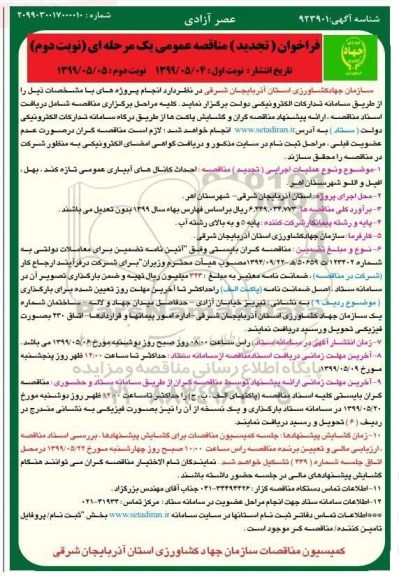 شناسه آگهی: ۹۲۳۹۰۱
عصر آزادی
شماره : ۲۰۹۹۰۳۰۰۱۷۰۰۰۰۱۰
فراخوان ( تجدید ) مناقصه عمومی یک مرحله ای (نوبت دوم)
تاریخ انتشار : نوبت اول: ۱۳۹۹/۰۵/۰۴ نوبت دوم: ۱۳۹۹/۰۵/۰۵
سازمان جهادکشاورزی استان آذربایجان شرقی در نظردارد انجام پروژه های با مشخصات ذیل را
از طریق سامانه تدارکات الکترونیکی دولت برگزار نماید . کلیه مراحل برگزاری مناقصه شامل دریافت
اسناد مناقصه ، ارائه پیشنهاد مناقصه گران و گشایش پاکت ها از طریق درگاه سامانه تدارکات الکترونیکی
دولت ( ستاد ) به آدرس www.setadiran.ir انجام خواهد شد؛ لازم است مناقصه گران درصورت عدم
عضویت قبلی ، مراحل ثبت نام در سایت مذکور و دریافت گواهی امضای الکترونیکی به منظور شرکت
در مناقصه را محقق سازند .
۱-موضوع ونوع عملیات اجرایی ( تجدید ) مناقصه : احداث کانال های آبیاری عمومی تازه کند ، بهل ،
افیل و اللو شهرستان اهر.
۲- محل اجرای پروژه : استان آذربایجان شرقی- شهرستان اهر.
۳- برآورد کلی مناقصه : ۶,۳۴۹,۰۳۴,۷۷۳ ریال براساس فهارس بهاء سال ۱۳۹۹ بدون تعدیل می باشند .
۴- پایه و رشته پیمانکار شرکت کننده : پایه ۵ و به بالای رشته آب .
۵- کارفرما: سازمان جهادکشاورزی استان آذربایجان شرقی.
۶- نوع و مبلغ تضمین : مناقصه گران بایستی وفق "آئین نامه تضمین برای معاملات دولتی به
شماره ۱۲۳۴۰۲/ت۵۰۶۵۹ ه-۱۳۹۴/۰۹/۲۲ مصوب هیأت محترم وزیران" برای شرکت درفرآیند ارجاع کار
(شرکت در مناقصه) ، ضمانت نامه معتبر به مبلغ : ۳۲۳ میلیون ریال تهیه و ضمن بارگذاری تصویر آن در
سامانه ستاد ، اصل ضمانت نامه (پاکت الف) را حداکثر تا آخرین مهلت روز تعیین شده برای بارگذاری
( موضوع ردیف ۹ ) به نشانی : تبریز خیابان آزادی – حدفاصل میدان جهاد و لاله – ساختمان شماره
یک سازمان جهاد کشاورزی استان آذربایجان شرقی – اداره امور پیمانها و قراردادها – اتاق ۲۳۰ بصورت
فیزیکی تحویل ورسید دریافت نمایند.
۷- زمان انتشار آگهی در سامانه ستاد : راس ساعت ۰۸:۰۰ روز صبح روز دوشنبه مورخ ۱۳۹۹/۰۵/۰۶ می باشد.
۸- آخرین مهلت زمانی دریافت اسناد مناقصه از سامانه ستاد : حداکثر تا ساعت ۱۲:۰۰ ظهر روز پنجشنبه
مورخ ۱۳۹۹/۰۵/۰۹.
۹- آخرین مهلت زمانی ارائه پیشنهاد توسط مناقصه گران از طریق سامانه ستاد و حضوری : مناقصه
گران بایستی کلیه اسناد مناقصه (پاکتهای الف ، ب ، ج) را حداکثر تاساعت ۱۲:۰۰ ظهر روز دوشنبه مورخ
۱۳۹۹/۰۵/۲۰ در سامانه ستاد بارگذاری و یک نسخه از آن را نیز بصورت فیزیکی به نشانی مندرج در
ردیف ( ۶ ) تحویل و رسید دریافت نمایند.
۱۰- زمان گشایش پیشنهادها : جلسه کمیسیون مناقصات برای گشایش پیشنهادها ، بررسی اسناد مناقصه
، ارزیابی مالی و تعیین برنده مناقصه راس ساعت ۱۰:۰۰ صبح روز چهارشنبه مورخ ۱۳۹۹/۰۵/۲۲ درمحل
اتاق جلسه شماره ( ۳۳۹ ) تشکیل خواهد شد. نمایندگان تام الاختیار مناقصه گران می توانند هنگام
گشایش پیشنهادهای مالی در جلسه حضور داشته باشند :
۱۱- اطلاعات تماس دستگاه مناقصه گزار : ۳۴۴۹۴۴۴۶-۰۴۱ جناب آقای مهندس بزرگزاد.
۱۲-اطلاعات سامانه ستاد جهت انجام مراحل عضویت در سامانه ستاد : مرکز تماس: ۴۱۹۳۴-۰۲۱
***اطلاعات تماس دفاتر ثبت نام استانها در سایت سامانه www.setadiran.ir بخش "ثبت نام/ پروفایل
تامین کننده/ مناقصه گر موجود است .
کمیسیون مناقصات سازمان جهاد کشاورزی استان آذربایجان شرقی